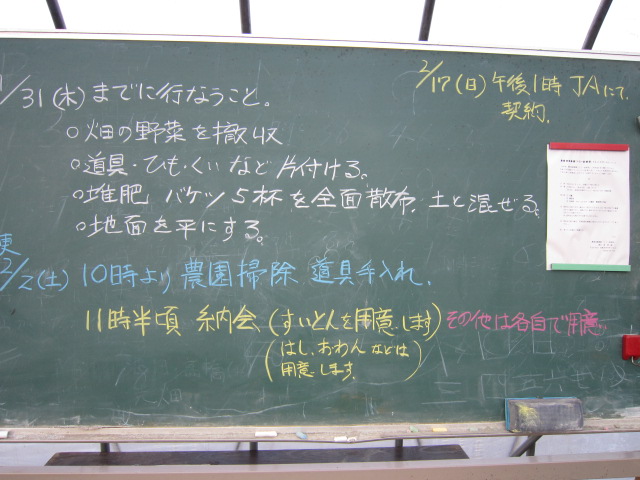 1/31(木)までに行なうこと。
○畑の野菜を撤収
○道具・ひも・くいなど片付ける。
○堆肥 バケツ5杯を全面散布、土と混ぜる、
○地面を平にする。
2/17(日)午後1時 JAにて
契約.
更
2/2(土) 10時より 農園掃除 道具手入れ.
11時半頃 納会、(すいとんを用意します) その他は各自で用意
(はし、おわんなどは
用意します.)